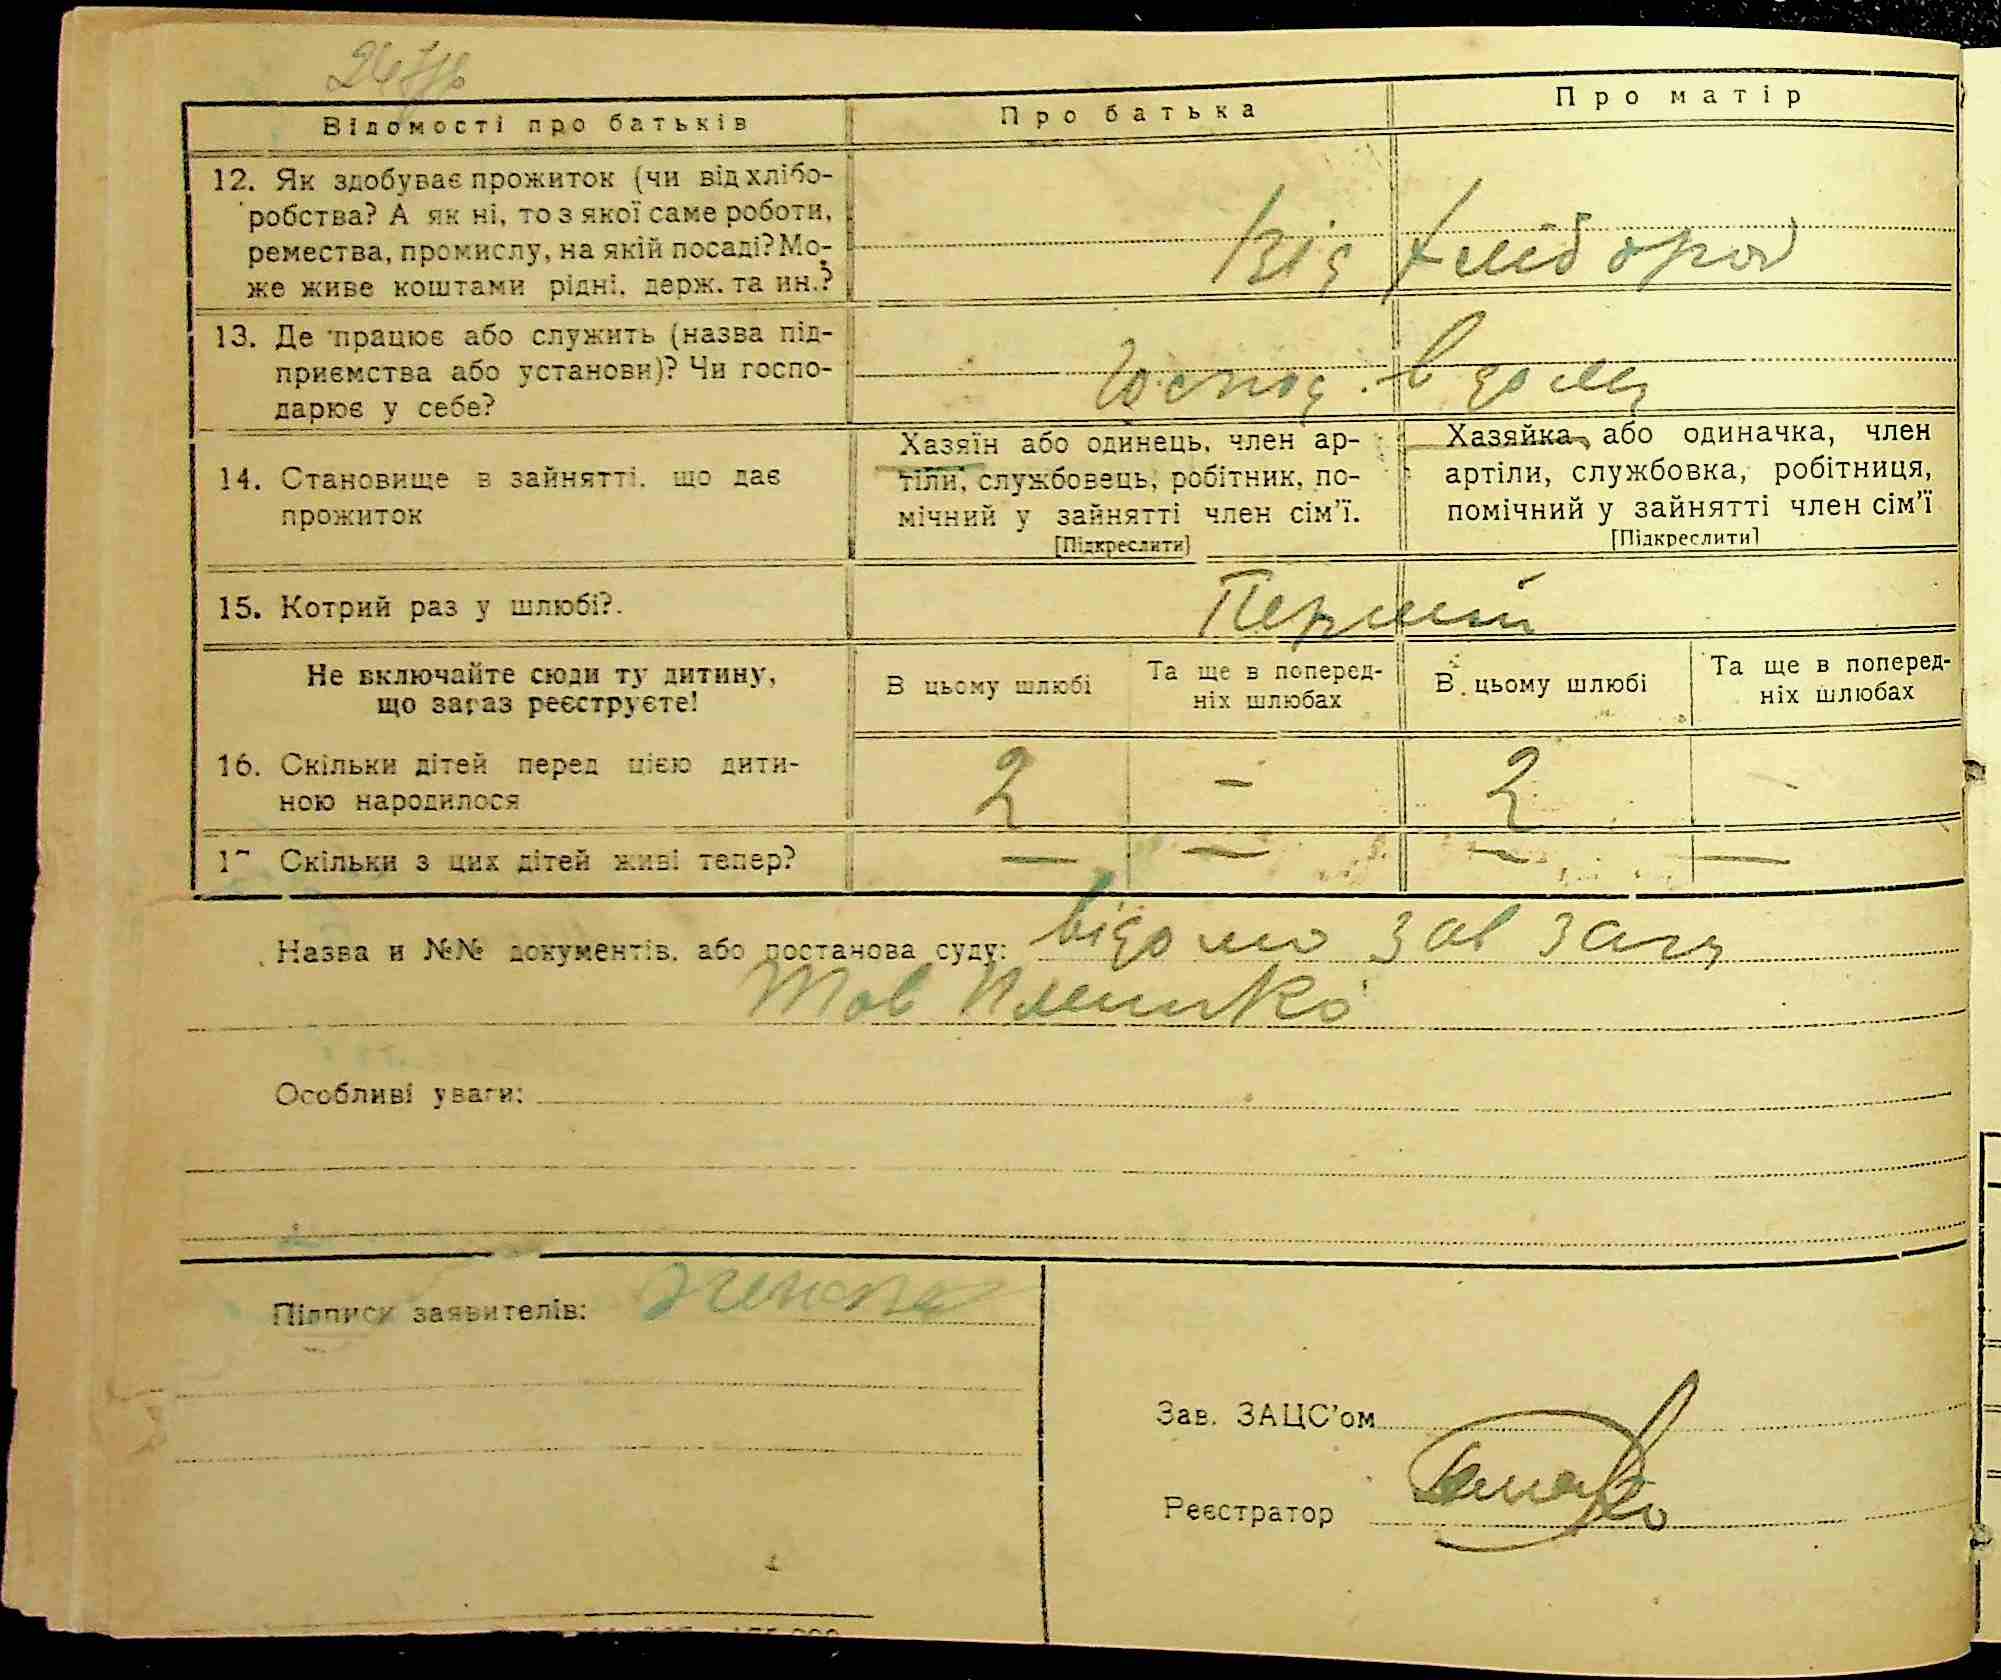 Відомості про батьків
Про батька
Про матір
12. Як здобуває прожиток (чи від хлібо-
робства? А як ні, то з якої саме роботи,
ремества, промислу, на якій посаді? Мо-
же живе коштами рідні, держ. та ин.?
Від хлібороб
13. Де працює або служить (назва під-
приємства або установи)? Чи госпо-
дарює у себе?
Господ. в дома
14. Становище в зайнятті, що дає
прожиток
Хазяїн або одинець, член ар-
тіли, службовець, робітник, по-
мічний у зайнятті член сім'ї.
[Підкреслити]
Хазяйка або одиначка, член
артіли, службовка, робітниця,
помічний у зайнятті член сім'ї
[Підкреслити]
15. Котрий раз у шлюбі?.
Перший
Не включайте сюди ту дитину,
що зараз реєструєте!
В цьому шлюбі
Та ще в поперед-
ніх шлюбах
В цьому шлюбі
Та ще в поперед-
ніх шлюбах
16. Скільки дітей перед цією дити-
ною народилося
2 - 2 -
17 Скільки з цих дітей живі тепер?
— — — —
Назва и №№ документів, або постанова суду: відомо зав загс
тов
Особливі уваги:
Підписи заявителів:
Зав. ЗАЦС'ом
Реєстратор